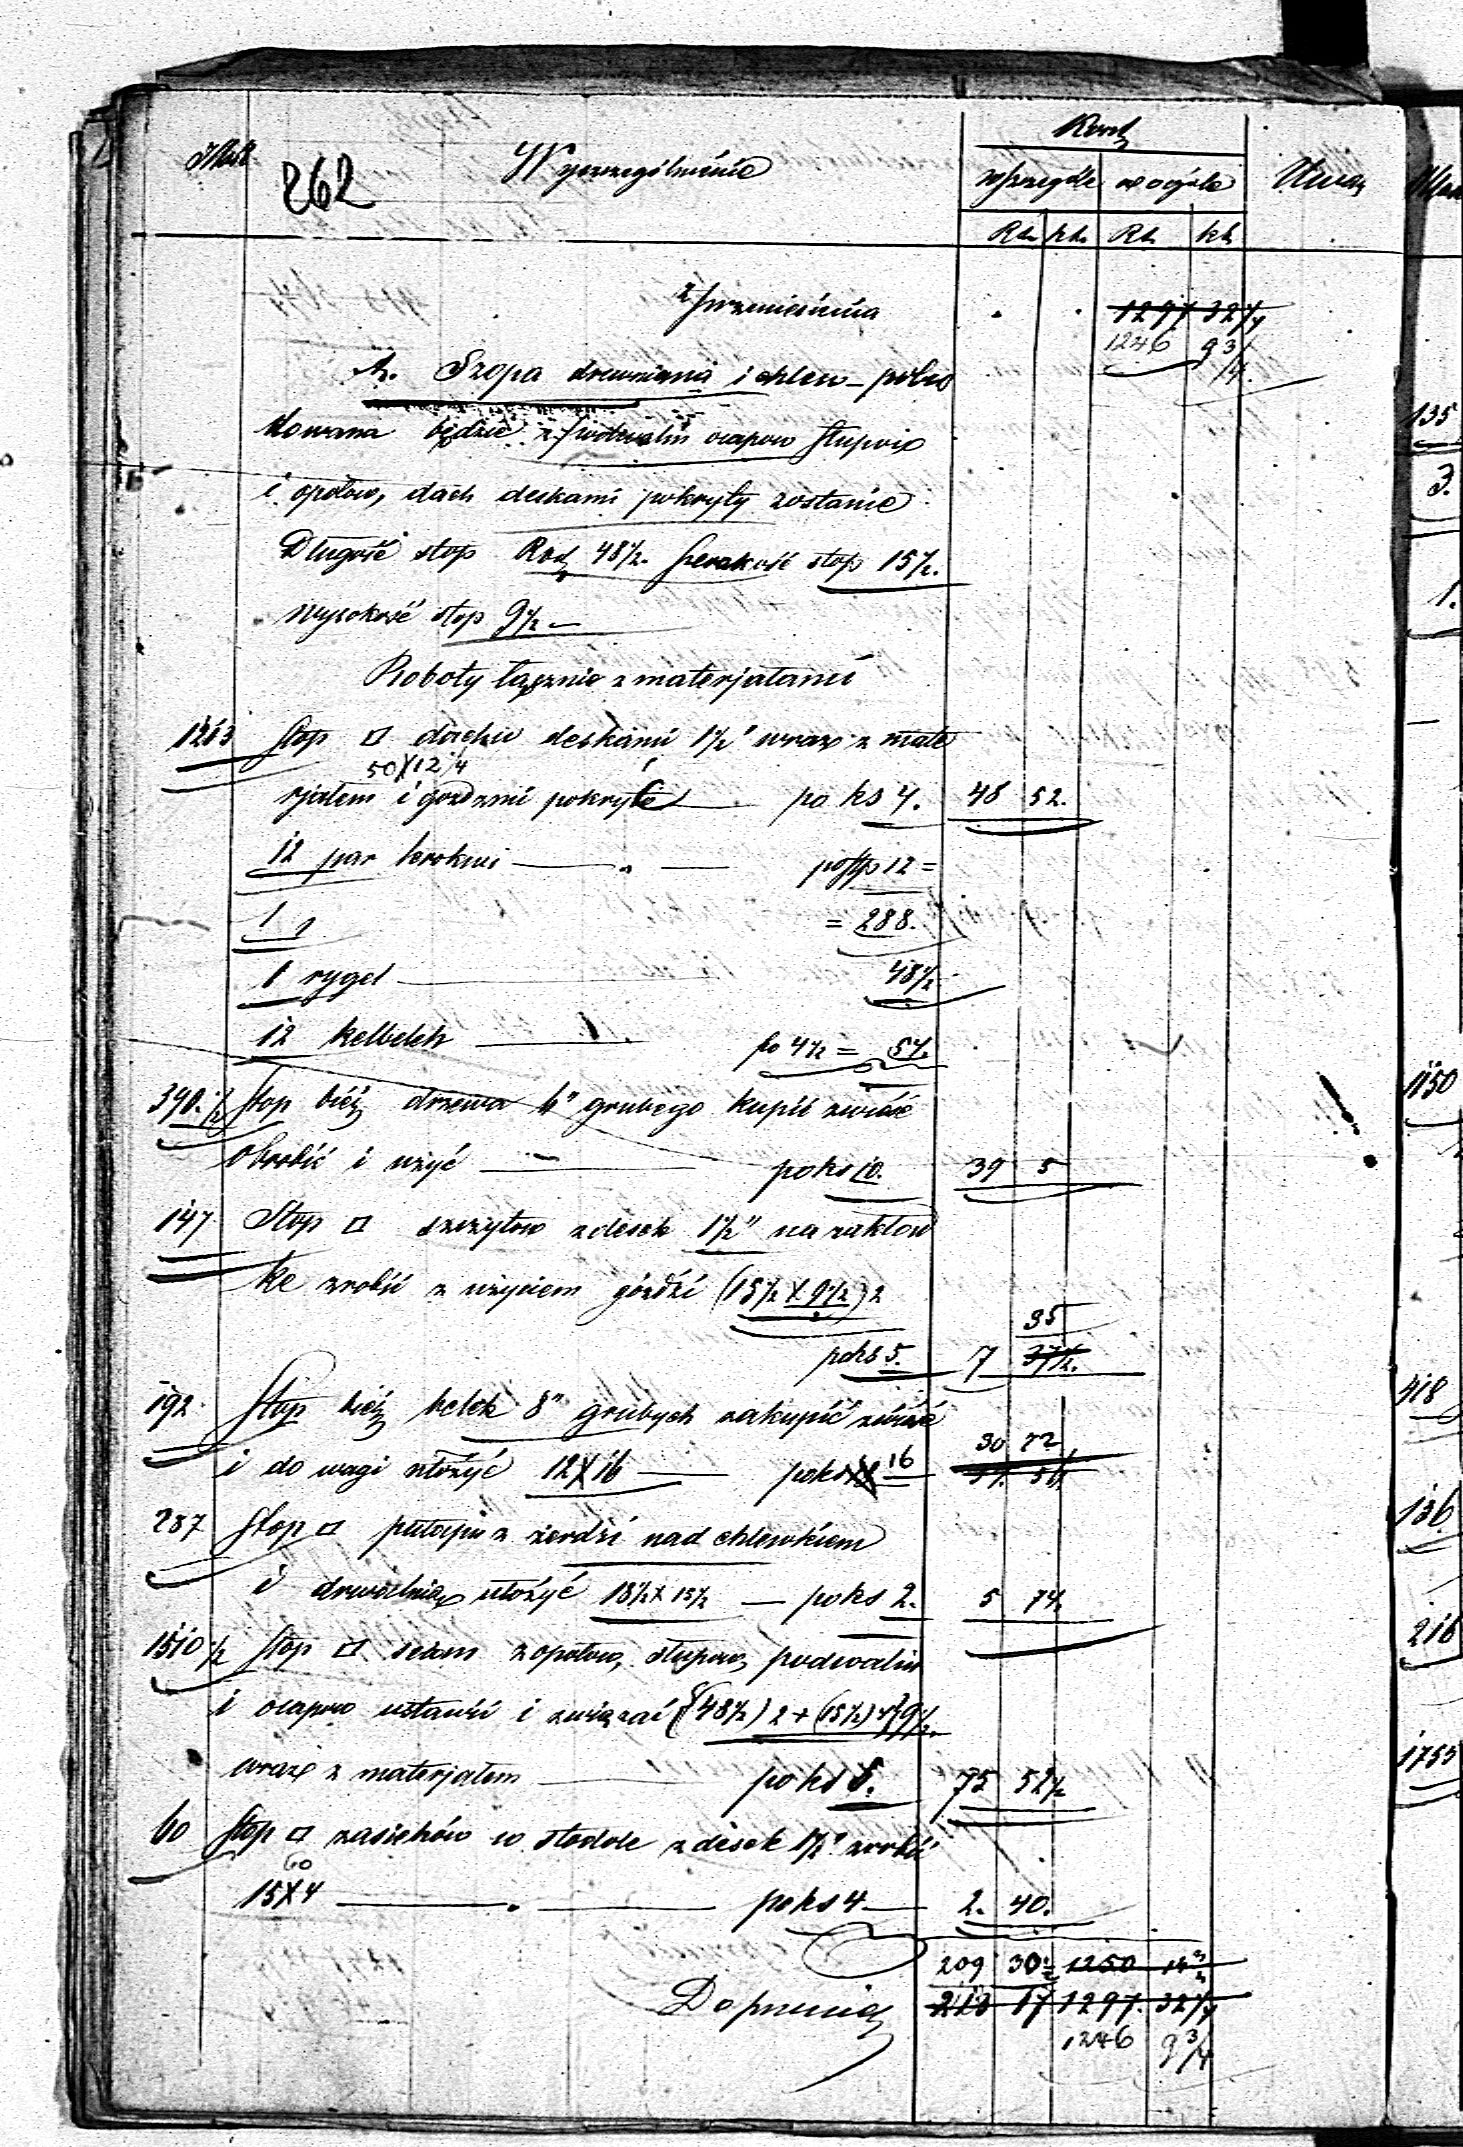 Ilość 262 Wyszczególnienie Koszt Uwaga
w szczególe w ogóle
Rs. ks. Rs. ks.
z przeniesienia . . 1297 32 1/4
1246 9 3/4
A. Szopa drewniana i chlew - pobu
dowana będzie z podwalin ocapow słupow
i opołow, dach deskami pokryty zostanie
Długość stop 48 1/2. szerokość stop 15 1/2.
wysokość stop 9 1/2 —
Roboty łącznie z materjałami
1213 Stop □ dachu deskami 1 1/2" wraz z mate
50 X 12 1/4
rjałem i goździmi pokryć — po ks 4. 48 52.
12 par krokwi — po stp 12 =
= 288.
1 rygel — 48 1/2
12 kelbelek — po 4 1/2 = 54.
390. 1/2 Stop bież drzewa 4" grubego kupić zwieść
obrobić i użyć — po ks 10. 39 5
147 Stop □ szczytow z desek 1 1/2" na zakład
ke zrobić z użyciem góździ (15 1/2 X 9 1/2) 2
35
po ks 5. 7 37 1/2.
192. Stop bież belek 8" grubych zakupić zwieść
30 72
i do wagi ułożyć 12 X 16 — po ks 16
287 Stop □ pułapu z żerdzi nad chlewkiem
i drwalnią ułożyć 18 1/2 X 15 1/2 — po ks 2. 5 74
1510 1/2 Stop □ ścian z opołow, słupow, podwalin
i ocapow ustawić i związać {(48 1/2) 2 + (15 1/2) 4} 9 1/2.
wraz z materjałem — po ks 5. 75 52 1/2
60 Stop □ zasieków w stodole z desek 1 1/2" zrobić
60
15 X 4 — po ks 4 — 2. 40.
209 30 1/2 1250 14 3/4
Do przenies 213 17 1297. 32 1/4
1246 9 3/4